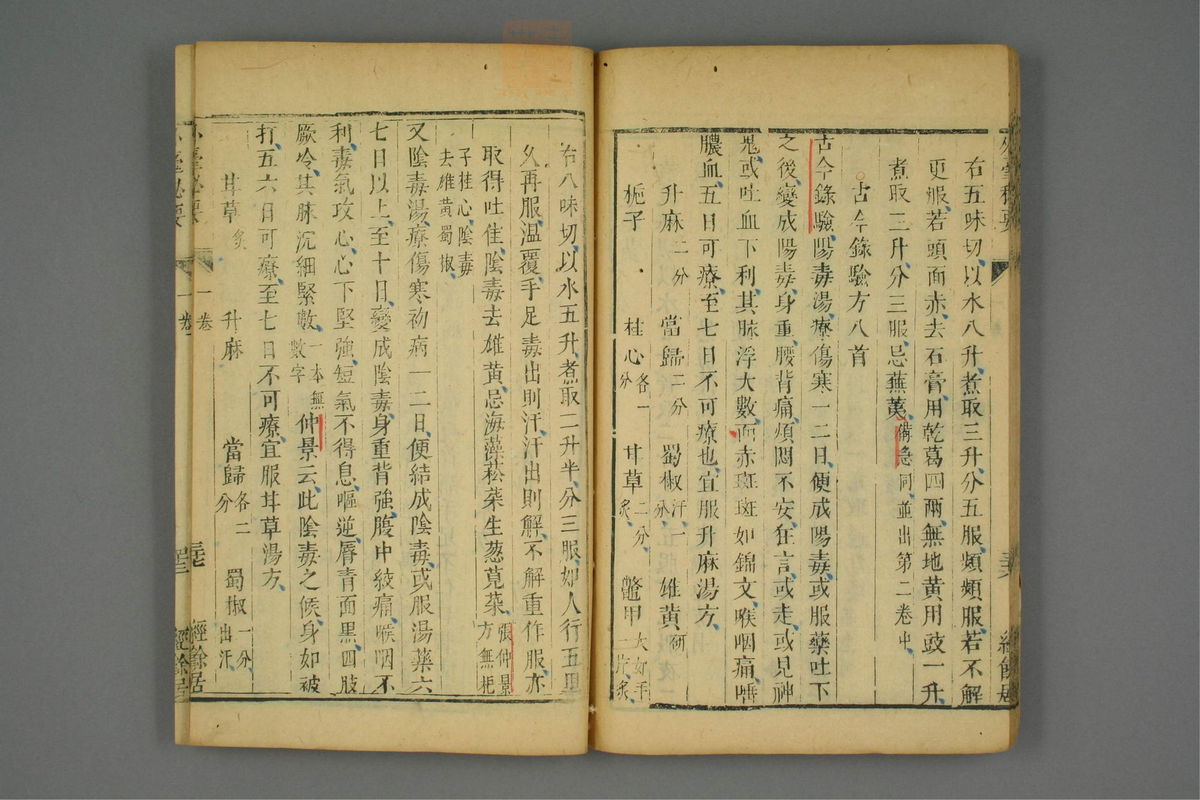 右五味切以水八升煮取三升分五服頻頻服若不解
更服若頭面赤去石膏用乾葛四兩無地黃用豉一升
煮取二升分三服忌蕪荑備急同並出第二卷中
古今錄驗方八首
古今錄驗陽毒湯療傷寒一二日便成陽毒或服藥吐下
之後變成陽毒身重腰背痛煩悶不安狂言或走或見神
鬼或吐血下利其脉浮大數面赤斑斑如錦文喉咽痛唾
膿血五日可療至七日不可療也宜服升麻湯方
升麻二分 當歸二分 蜀椒汗一分 雄黃研
梔子 桂心各一分 甘草二分炙 鼈甲大如手一片炙
右八味切以水五升煮取二升半分三服如人行五里
久再服溫覆手足毒出則汗汗出則解不解重作服亦
取得吐佳陰毒去雄黃忌海藻菘菜生葱莧菜張仲景方無梔
子桂心陰毒去雄黃蜀椒
又陰毒湯療傷寒初病一二日便結成陰毒或服湯藥六
七日以上至十日變成陰毒身重背強腹中絞痛喉咽不
利毒氣攻心心下堅強短氣不得息嘔逆唇青面黑四肢
厥冷其脉沉細緊數一本無數字仲景云此陰毒之候身如被
打五六日可療至七日不可療宜服甘草湯方
甘草炙 升麻 當歸各二分 蜀椒一分出汗
一卷
經餘居